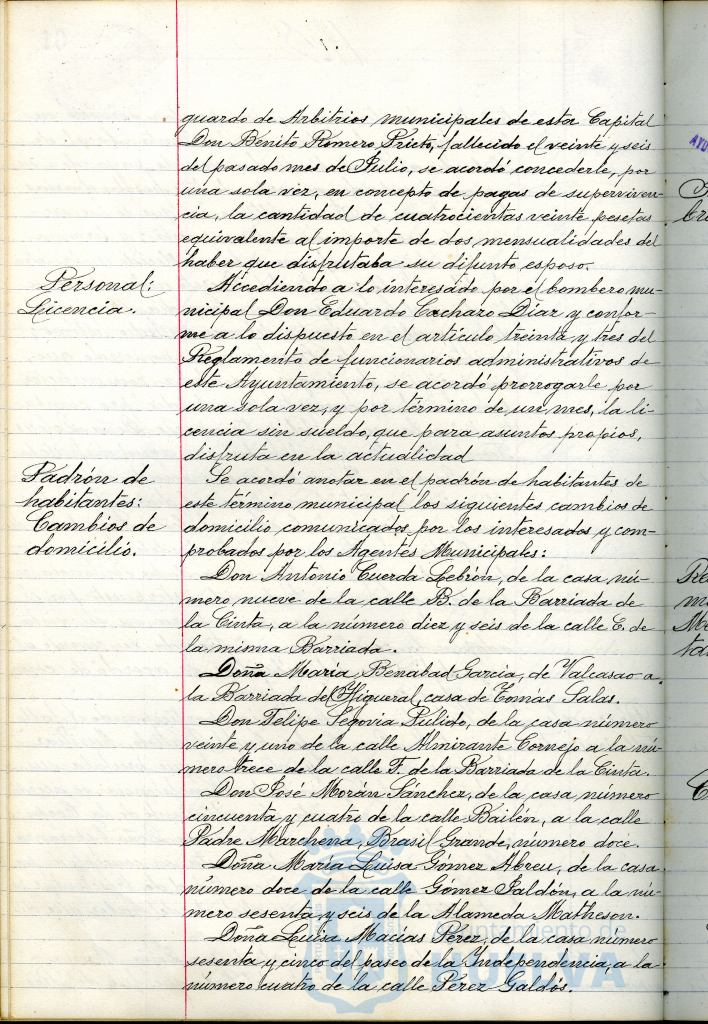 guardo de Arbitrios municipales de esta Capital
Don Benito Romero Prieto, fallecido el veinte y seis
del pasado mes de Julio, se acordó concederle, por
una sola vez, en concepto de pagas de superviven-
cia, la cantidad de cuatrocientas veinte pesetas
equivalente al importe de dos mensualidades del
haber que disfrutaba su difunto esposo.
Personal:
Licencia.
Accediendo a lo interesado por el bombero mu-
nicipal Don Eduardo Cachazo Díaz y confor-
me a lo dispuesto en el artículo treinta y tres del
Reglamento de funcionarios administrativos de
este Ayuntamiento, se acordó prorrogarle por
una sola vez, y por término de un mes, la li-
cencia sin sueldo, que para asuntos propios,
disfruta en la actualidad
Padrón de
habitantes:
Cambios de
domicilio.
Se acordó anotar en el padrón de habitantes de
este término municipal los siguientes cambios de
domicilio comunicados por los interesados y com-
probados por los Agentes Municipales:
Don Antonio Cuerda Lebrón, de la casa nú-
mero nueve de la calle B. de la Barriada de
la Cinta, a la número diez y seis de la calle E. de
la misma Barriada.
Doña María Benabad García, de Valcasao a
la Barriada del Higueral, casa de Tomás Salas.
Don Felipe Segovia Pulido, de la casa número
veinte y uno de la calle Almirante Cornejo a la nú-
mero trece de la calle F. de la Barriada de la Cinta.
Don José Morán Sánchez, de la casa número
cincuenta y cuatro de la calle Bailén, a la calle
Padre Marchena, Brasil Grande, número doce.
Doña María Luisa Gómez Abreu, de la casa
número doce de la calle Gómez Jaldón, a la nú-
mero sesenta y seis de la Alameda Matheson.
Doña Luisa Macías Pérez, de la casa número
sesenta y cinco del paseo de la Independencia, a la
número cuatro de la calle Pérez Galdós.
Ayuntamiento de
HUELVA